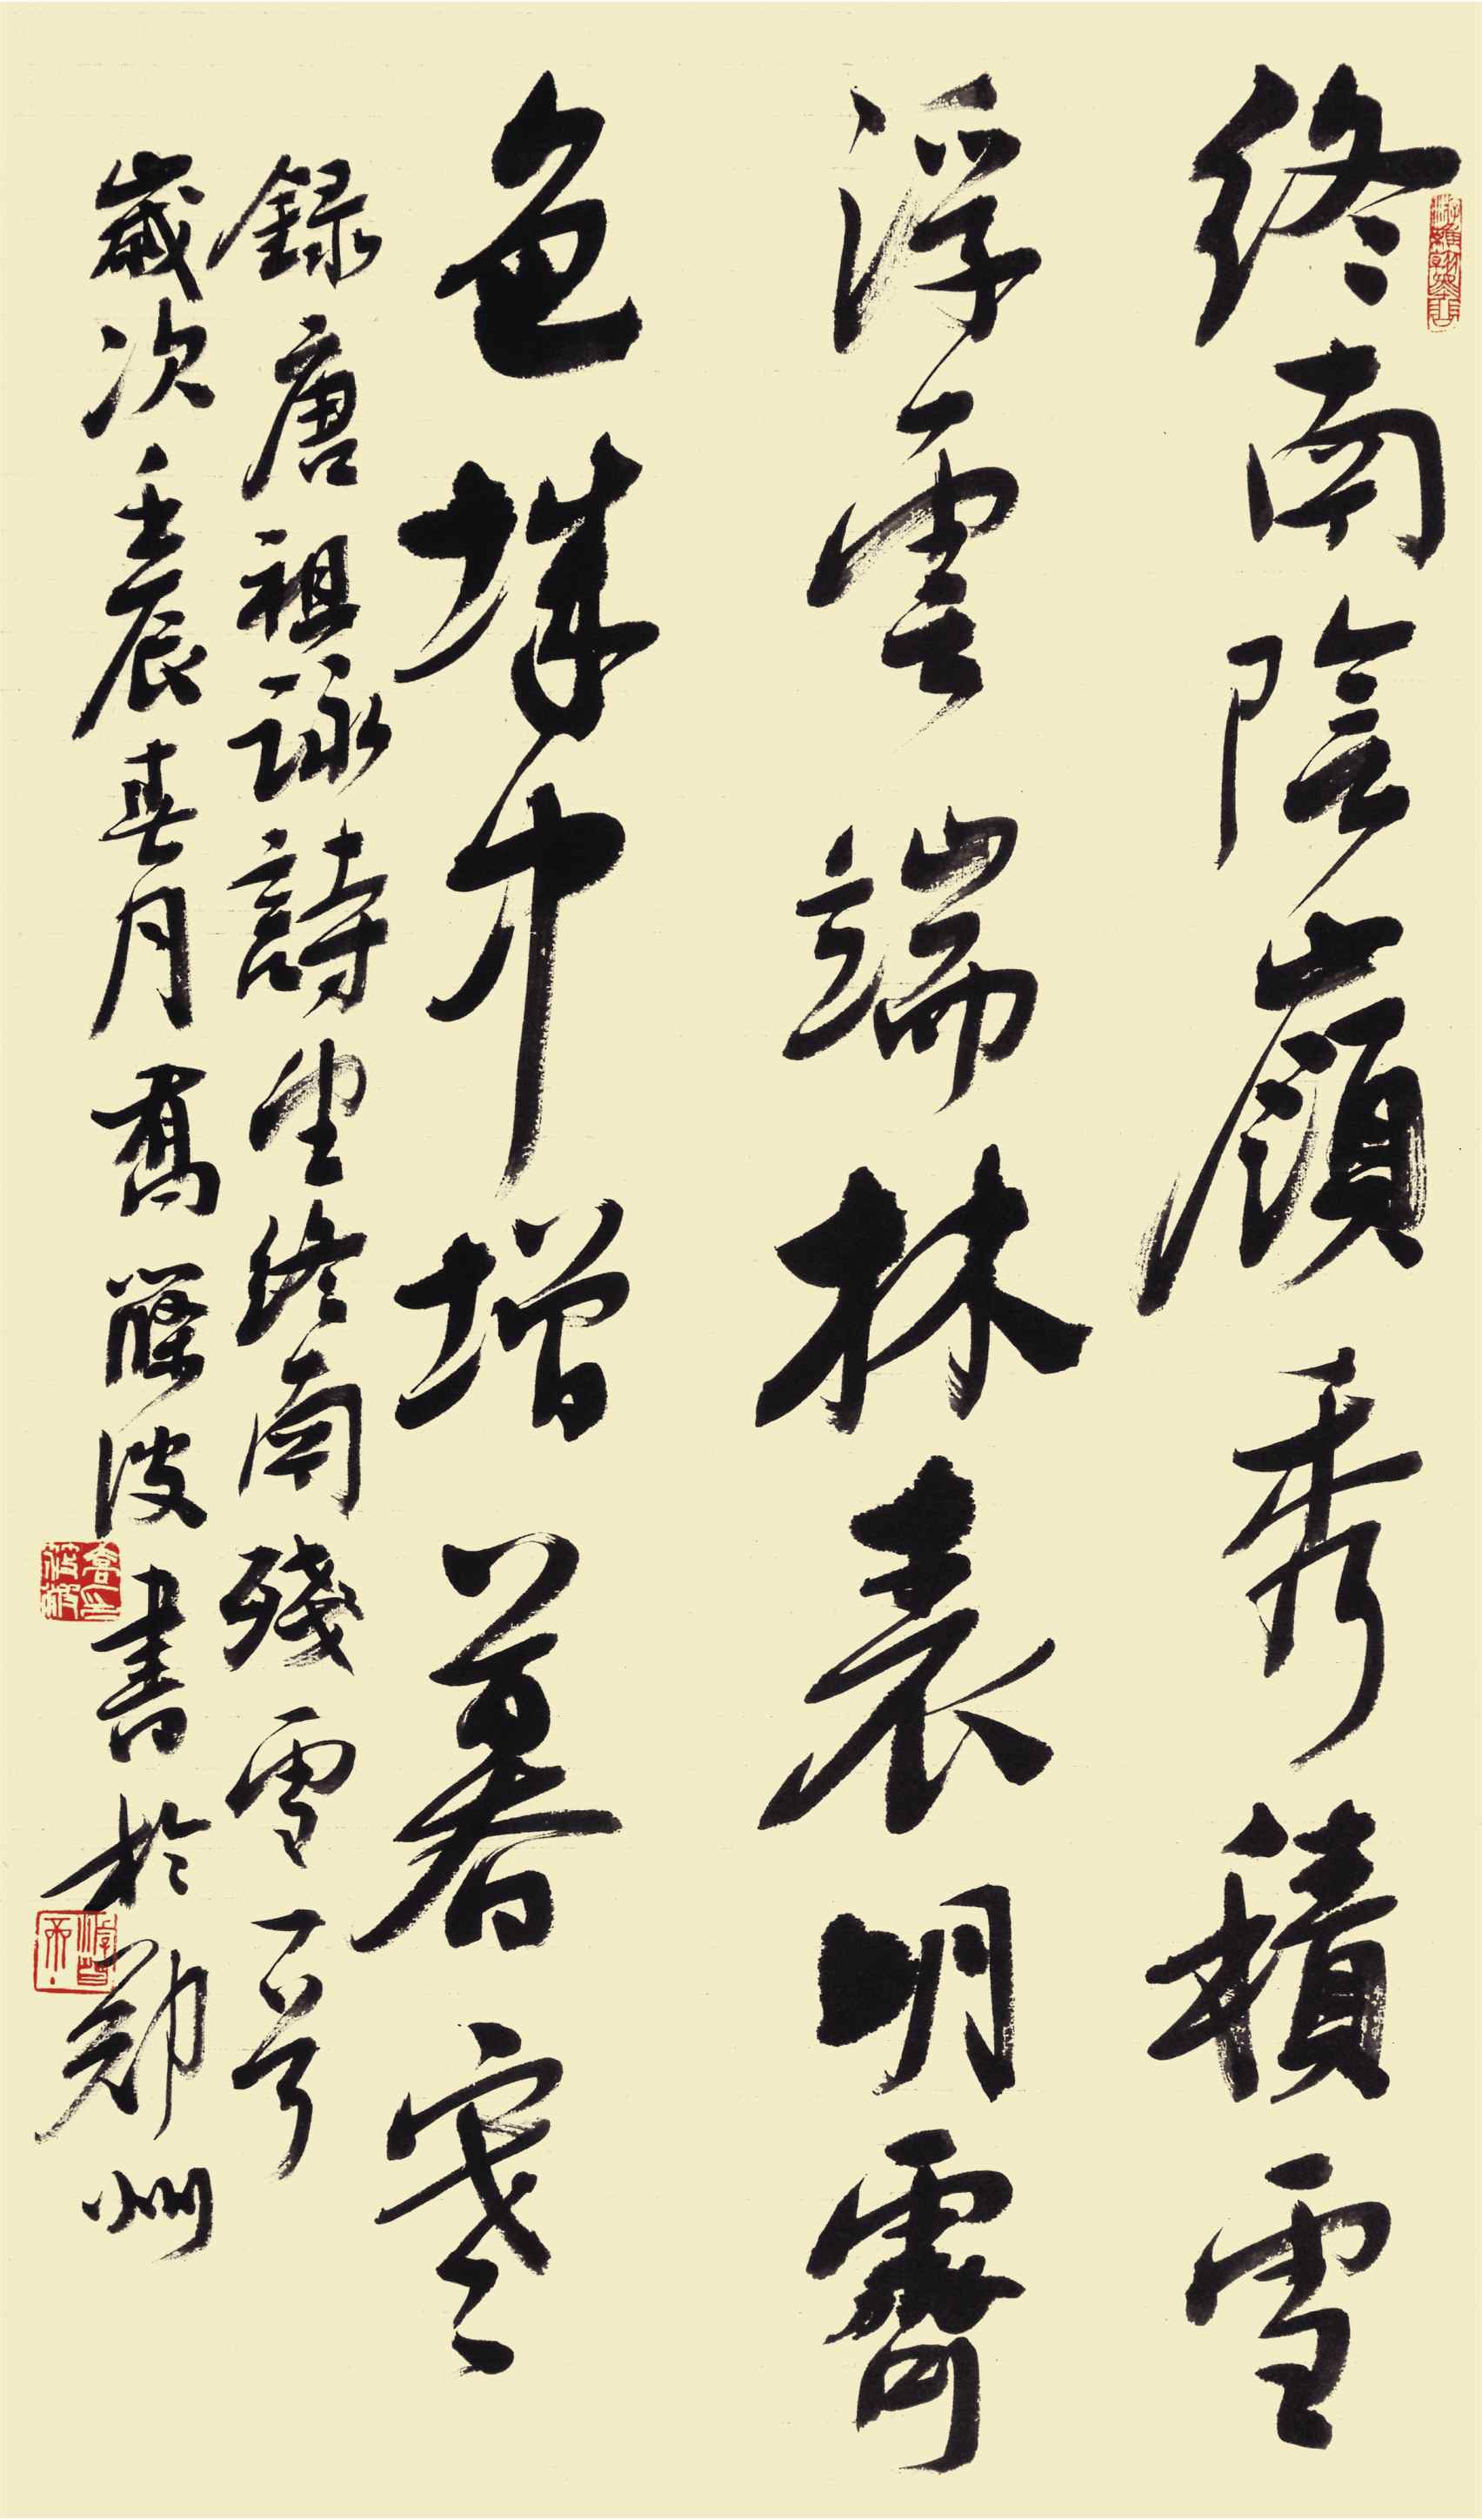 終南陰嶺秀積雪
浮雲端林表明霽
色城中增暮寒
録唐祖詠詩望終南殘雪一首
歲次壬辰春月喬篠波書於鄭州